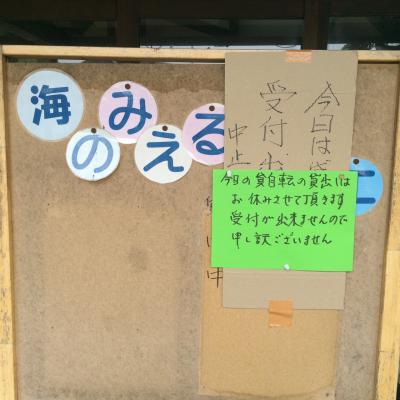 海のみえる
今日は
受付
中止
今日の貸自転の貸出しは
お休みさせて頂きます
受付が出来ませんので
申し訳ございません
中